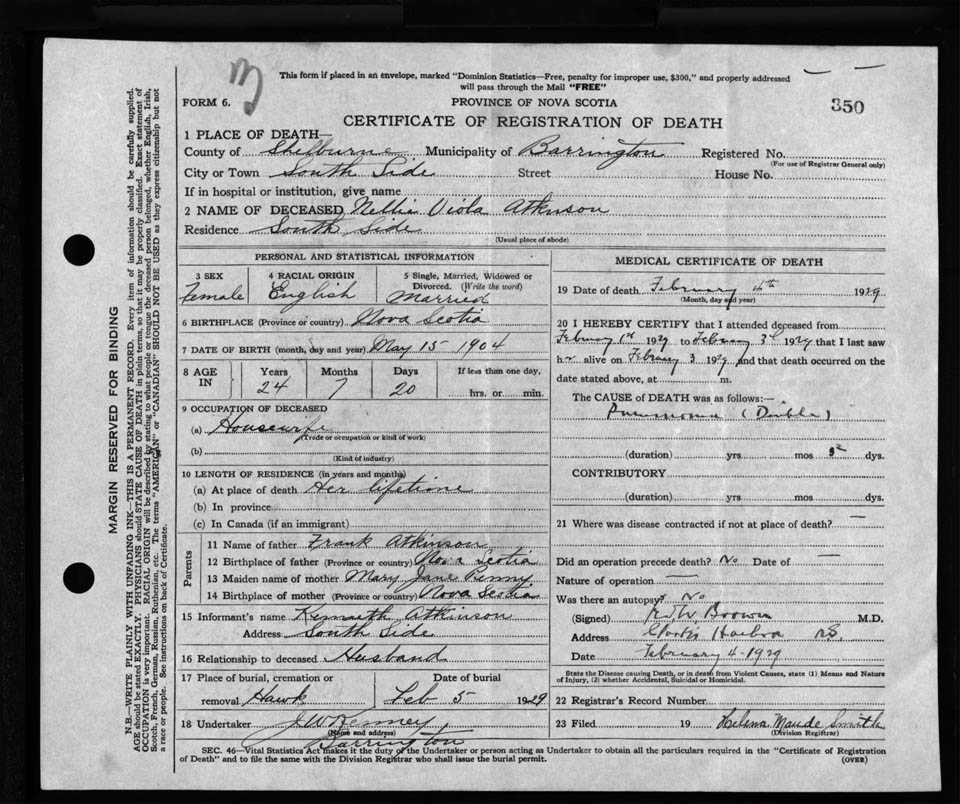 This form if placed in an envelope, marked "Dominion Statistics—Free, penalty for improper use, $300," and properly addressed
will pass through the Mail "FREE"
FORM 6.
PROVINCE OF NOVA SCOTIA
350
CERTIFICATE OF REGISTRATION OF DEATH
1 PLACE OF DEATH—
County of Shelburne Municipality of Barrington Registered No.
(For use of Registrar General only)
City or Town South Side Street House No.
If in hospital or institution, give name
2 NAME OF DECEASED Nellie Viola Atkinson
Residence South Side
(Usual place of abode)
PERSONAL AND STATISTICAL INFORMATION
3 SEX 4 RACIAL ORIGIN 5 Single, Married, Widowed or
Divorced. (Write the word)
Female English Married
6 BIRTHPLACE (Province or country) Nova Scotia
7 DATE OF BIRTH (month, day and year) May 15 1904
8 AGE IN Years Months Days If less than one day,
24 7 20 hrs. or min.
9 OCCUPATION OF DECEASED
(a) Housewife
(Trade or occupation or kind of work)
(b)
(Kind of industry)
10 LENGTH OF RESIDENCE (in years and months)
(a) At place of death Her lifetime
(b) In province
(c) In Canada (if an immigrant)
Parents
11 Name of father Frank Atkinson
12 Birthplace of father (Province or country) Nova Scotia
13 Maiden name of mother Mary Jane Penny
14 Birthplace of mother (Province or country) Nova Scotia
15 Informant's name Kenneth Atkinson
Address South Side
16 Relationship to deceased Husband
17 Place of burial, cremation or Date of burial
removal Hawk Feb 5 1929
18 Undertaker J.W. Kenney,
(Name and address)
Barrington
MEDICAL CERTIFICATE OF DEATH
19 Date of death February 4th 1929
(Month, day and year)
20 I HEREBY CERTIFY that I attended deceased from
February 1st 1929 to February 3rd 1929 that I last saw
h er alive on February 3 1929 and that death occurred on the
date stated above, at m.
The CAUSE OF DEATH was as follows:—
Pneumonia (Double)
(duration) yrs mos dys.
CONTRIBUTORY
(duration) yrs. mos. dys.
21 Where was disease contracted if not at place of death? —
Did an operation precede death? No Date of —
Nature of operation —
Was there an autopsy? No
(Signed) Brown M.D.
Address Clark's Harbor NS.
Date February 4-1929
State the Disease causing Death, or in death from Violent Causes, state (1) Means and Nature
of Injury, (2) whether Accidental, Suicidal or Homicidal.
22 Registrar's Record Number
23 Filed 19 Helena Maude Smith
(Division Registrar)
SEC. 46—Vital Statistics Act makes it the duty of the Undertaker or person acting as Undertaker to obtain all the particulars required in the "Certificate of Registration
of Death" and to file the same with the Division Registrar who shall issue the burial permit. (OVER)
MARGIN RESERVED FOR BINDING
N.B.—WRITE PLAINLY WITH UNFADING INK—THIS IS A PERMANENT RECORD. Every item of information should be carefully supplied.
AGE should be stated EXACTLY. PHYSICIANS should STATE CAUSE OF DEATH in plain terms, so that it may be properly classified. Exact statement of
OCCUPATION is very important. RACIAL ORIGIN will be described by stating to what people or tongue the deceased person belonged, whether English, Irish,
Scotch, French, German, Russian, Ruthenian, etc. The terms "AMERICAN" or "CANADIAN" SHOULD NOT BE USED as they express citizenship but not
a race or people. See instructions on back of Certificate.